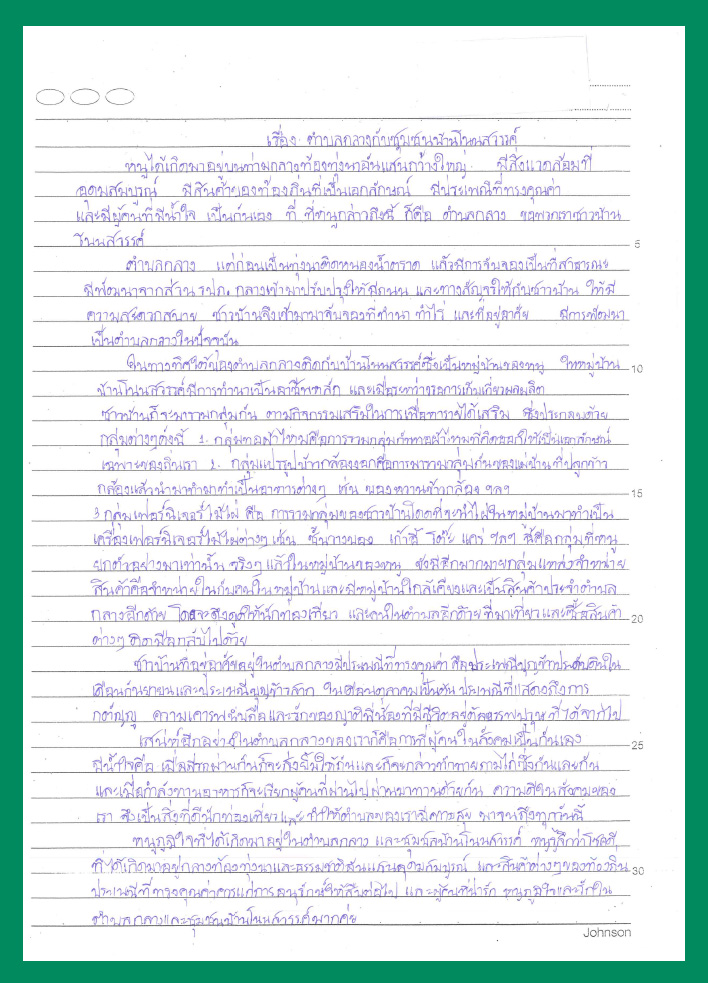 เรื่อง ตำบลกลางกับชุมชนบ้านโนนสวรรค์
หนูได้เกิดมาอยู่บนท่ามกลางท้องทุ่งนาอันแสนกว้างใหญ่ มีสิ่งแวดล้อมที่
อุดมสมบูรณ์ มีสินค้าของท้องถิ่นที่เป็นเอกลักษณ์ มีประเพณีที่ทรงคุณค่า
และมีผู้คนที่มีน้ำใจ เป็นกันเอง ที่ ที่หนูกล่าวถึงนี้ ก็คือ ตำบลกลาง ของพวกเราชาวบ้าน
โนนสวรรค์
5
ตำบลกลาง แต่ก่อนเป็นทุ่งนาติดหนองน้ำตราด แล้วมีการจับจองเป็นที่สาธารณะ
มีพัฒนาจากส่วน อปภ. กลางเข้ามาปรับปรุงให้มีถนน และทางสัญจรให้กับชาวบ้าน ให้มี
ความสะดวกสบาย ชาวบ้านจึงเข้ามาจับจองที่ทำนา ทำไร่ และที่อยู่อาศัย มีการพัฒนา
เป็นตำบลกลางในปัจจุบัน
ในทางทิศใต้ของตำบลกลางติดกับบ้านโนนสวรรค์ซึ่งเป็นหมู่บ้านของหนู ในหมู่บ้าน
10
บ้านโนนสวรรค์มีการทำนาเป็นอาชีพหลัก และเมื่อระหว่างรอการเก็บเกี่ยวผลผลิต
ชาวบ้านก็จะมารวมกลุ่มกัน ตามกิจกรรมเสริมในการเพื่อหารายได้เสริม ซึ่งประกอบด้วย
กลุ่มต่างๆดังนี้ 1. กลุ่มทอผ้าไหมคือการรวมกลุ่มกันทอผ้าไหมที่คิดออกให้เป็นเอกลักษณ์
เฉพาะของถิ่นเรา 2. กลุ่มแปรรูปข้าวกล้องงอกคือการมารวมกลุ่มกันของแม่บ้านที่ปลูกข้าว
กล้องแล้วนำมาทำมาทำเป็นอาหารต่างๆ เช่น ของหวานข้าวกล้อง ฯลฯ
15
3 กลุ่มเฟอร์นิเจอร์ไม้ไผ่ คือ การรวมกลุ่มของชาวบ้านโดดที่จะนำไผ่ในหมู่บ้านมาทำเป็น
เครื่องเฟอร์นิเจอร์ไม้ไผ่ต่างๆ เช่น ชั้นวางของ เก้าอี้ โต๊ะ แคร่ ฯลฯ นี้คือกลุ่มที่หนู
ยกตัวอย่างมาเท่านั้น จริงๆ แล้วในหมู่บ้านของหนู ยังมีอีกมากมายกลุ่มแหล่งจำหน่าย
สินค้าคือจำหน่ายในกับคนในหมู่บ้านและมีหมู่บ้านใกล้เคียงและเป็นสินค้าประจำตำบล
กลางอีกด้วย โดดจะดึงดูดให้นักท่องเที่ยว และคนในตำบลอีกด้วย ที่มาเที่ยวและซื้อสินค้า
20
ต่างๆ ติดมือกลับไปด้วย
ชาวบ้านที่อยู่อาศัยอยู่ในตำบลกลางมีประเพณีที่ทรงคุณค่า คือประเพณีบุญข้าวประดับดินใน
เดือนกันยายนและประเพณีบุญข้าวสาก ในเดือนตุลาคมเป็นต้น ประเพณีที่แสดงถึงการ
กตัญญู ความเคารพนับถือและรักของญาติพี่น้องที่มีชีวิตอยู่ต่อบรรพบุรุษที่ได้จากไป
เสน่ห์อีกอย่างในตำบลกลางของเราก็คือการที่ผู้คนในสังคมเป็นกันเอง
25
มีน้ำใจคือ เมื่อเดินผ่านกันก็จะส่งยิ้มให้กันและก็จะกล่าวทักทายถามไถ่ซึ่งกันและกัน
และเมื่อกำลังทานอาหารก็จะเรียกผู้คนที่ผ่านไปผ่านมาทานด้วยกัน ความดีในสังคมของ
เรา จึงเป็นสิ่งที่ดึนักท่องเที่ยวและ ทำให้ตำบลของเรามีความสุข มาจนถึงทุกวันนี้
หนูภูมิใจที่ได้เกิดมาอยู่ในตำบลกลาง และชุมชนบ้านโนนสวรรค์ หนูรู้สึกว่าโชคดี
ที่ได้เกิดมาอยู่กลางท้องทุ่งนาและธรรมชาติอันแสนอุดมสมบูรณ์ และสินค้าต่างๆของท้องถิ่น
30
ประเพณีที่ทรงคุณค่าควรแก่การอนุรักษ์ให้สืบต่อไป และผู้คนที่น่ารัก หนูภูมิใจและรักใน
ตำบลกลางและชุมชนบ้านโนนสวรรค์มากค่ะ
Johnson